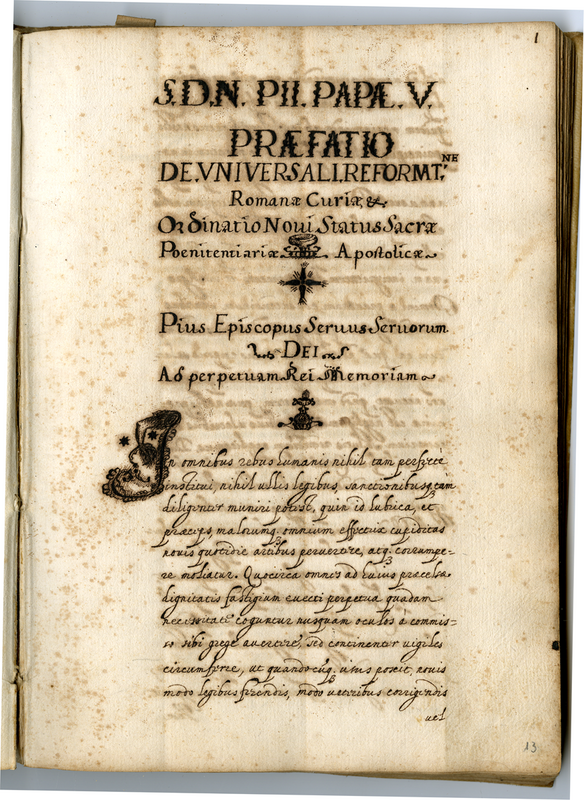 1
S. D. N. PII. PAPÆ. V.
PRÆFATIO
DE. VNIVERSALI. REFORMT.NE
Romanæ Curiæ, &.
Ordinatio Noui Status Sacræ
Poenitentiariæ Apostolicæ
Pius Episcopus Seruus Seruorum.
DEI
Ad perpetuam Rei Memoriam
In omnibus rebus humanis nihil tam perfecte
institui, nihil ullis legibus, sanctionibusq. tam
diligenter muniri potest, quin id lubrica, et
præceps, malorumq. omnium effectrix cupiditas
nouis quotidie artibus peruertere, atq. corrumpe=
re moliatur. Quocirca omnes ad huius præcelsæ
dignitatis fastigium euecti perpetua quadam
necessitate coguntur nusquam oculos a commis=
so sibi grege auertere, sed continenter uigiles
circumferre, ut quandocūq. usus poscit, nouis
modo legibus ferendis, modo ueteribus corrigendis
uel
13